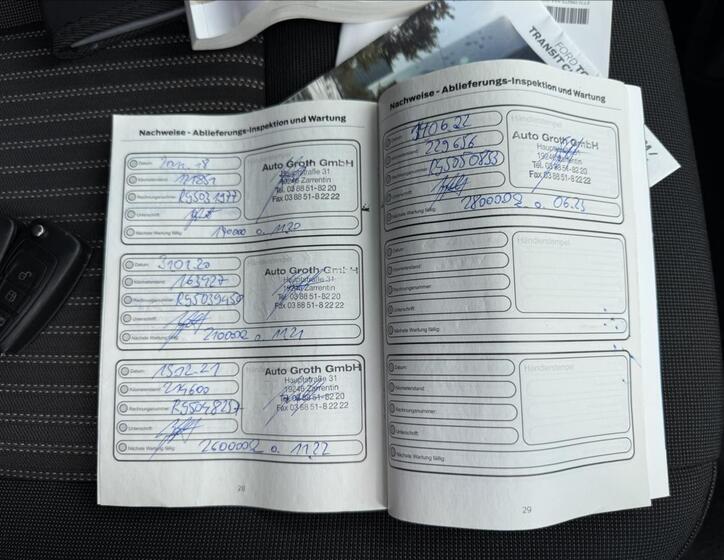 FORD TO
TRANSIT C
Nachweise - Ablieferungs-Inspektion und Wartung
Datum:
Kilometerstand: 121851
Rechnungsnummer:
Unterschrift:
Nächste Wartung fällig: 190000 o. 11.20
Auto Groth GmbH
Hauptstraße 31
19246 Zarrentin
Tel. 03 88 51-82 20
Fax 03 88 51-8 22 22
Datum: 3101.20
Kilometerstand: 163427
Rechnungsnummer: RG5039450
Unterschrift:
Nächste Wartung fällig: 210000 o. 11.21
Auto Groth GmbH
Hauptstraße 31
19246 Zarrentin
Tel. 03 88 51-82 20
Fax 03 88 51-8 22 22
Datum: 1512.21
Kilometerstand: 214600
Rechnungsnummer: RG5048257
Unterschrift:
Nächste Wartung fällig: 260000 o. 11.22
Auto Groth GmbH
Hauptstraße 31
19246 Zarrentin
Tel. 03 88 51-82 20
Fax 03 88 51-8 22 22
28
Nachweise - Ablieferungs-Inspektion und Wartung
Datum: 06.22
Kilometerstand: 229656
Rechnungsnummer: RG5050833
Unterschrift:
Nächste Wartung fällig: 280000 o. 06.23
Händlerstempel
Auto Groth GmbH
Hauptstraße 31
19246 Zarrentin
Tel. 03 88 51-82 20
Fax 03 88 51-8 22 22
Datum:
Kilometerstand:
Rechnungsnummer:
Unterschrift:
Nächste Wartung fällig:
Händlerstempel
Datum:
Kilometerstand:
Rechnungsnummer:
Unterschrift:
Nächste Wartung fällig:
Händlerstempel
29